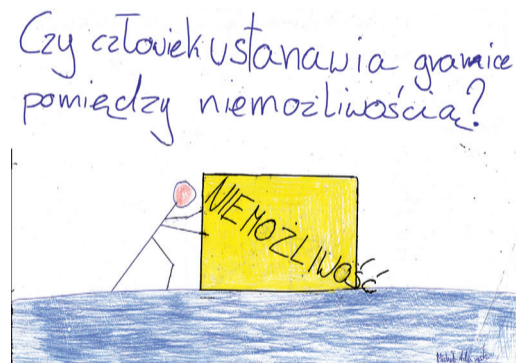 Czy człowiek ustanawia granice
pomiędzy niemożliwością?
NIEMOŻLIWOŚĆ